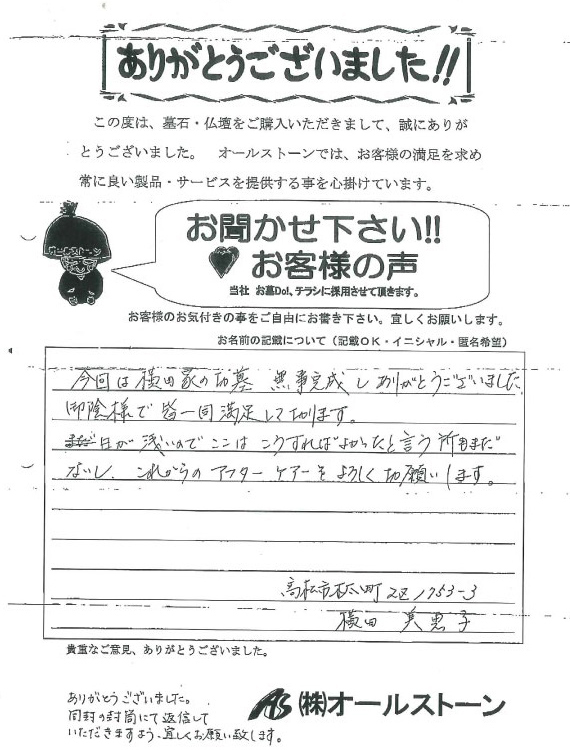 ありがとうございました!!
この度は、墓石・仏壇をご購入いただきまして、誠にありが
とうございました。 オールストーンでは、お客様の満足を求め
常に良い製品・サービスを提供する事を心掛けています。
オールストーン
お聞かせ下さい!!
お客様の声
当社 お墓Do!、チラシに採用させて頂きます。
お客様のお気付きの事をご自由にお書き下さい。宜しくお願いします。
お名前の記載について(記載OK・イニシャル・匿名希望)
今回は横田家のお墓 無事完成しありがとうございました
御陰様で皆一同満足して切ります。
日が浅いのでここはこうすればよかったと言う所もまだ
ないし、これからのアフターケアーをよろしくお願いします。
高松市 町 1753-3
横田 美恵子
貴重なご意見、ありがとうございました。
ありがとうございました。
同封の封筒にて返信して
いただきますよう、宜しくお願い致します。
AS (株)オールストーン